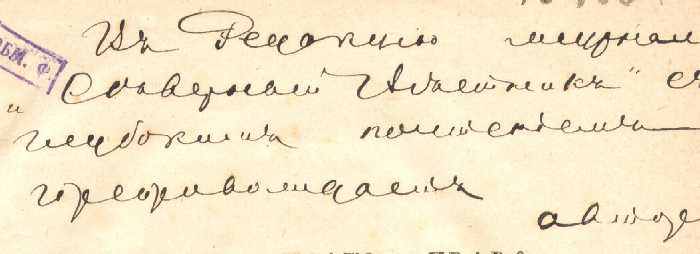 Въ Редакцію журнал
„Сѣверный Вѣстникъ" съ
глубокимъ почтеніемъ
препровождаетъ
автор
ОБМ. Ф